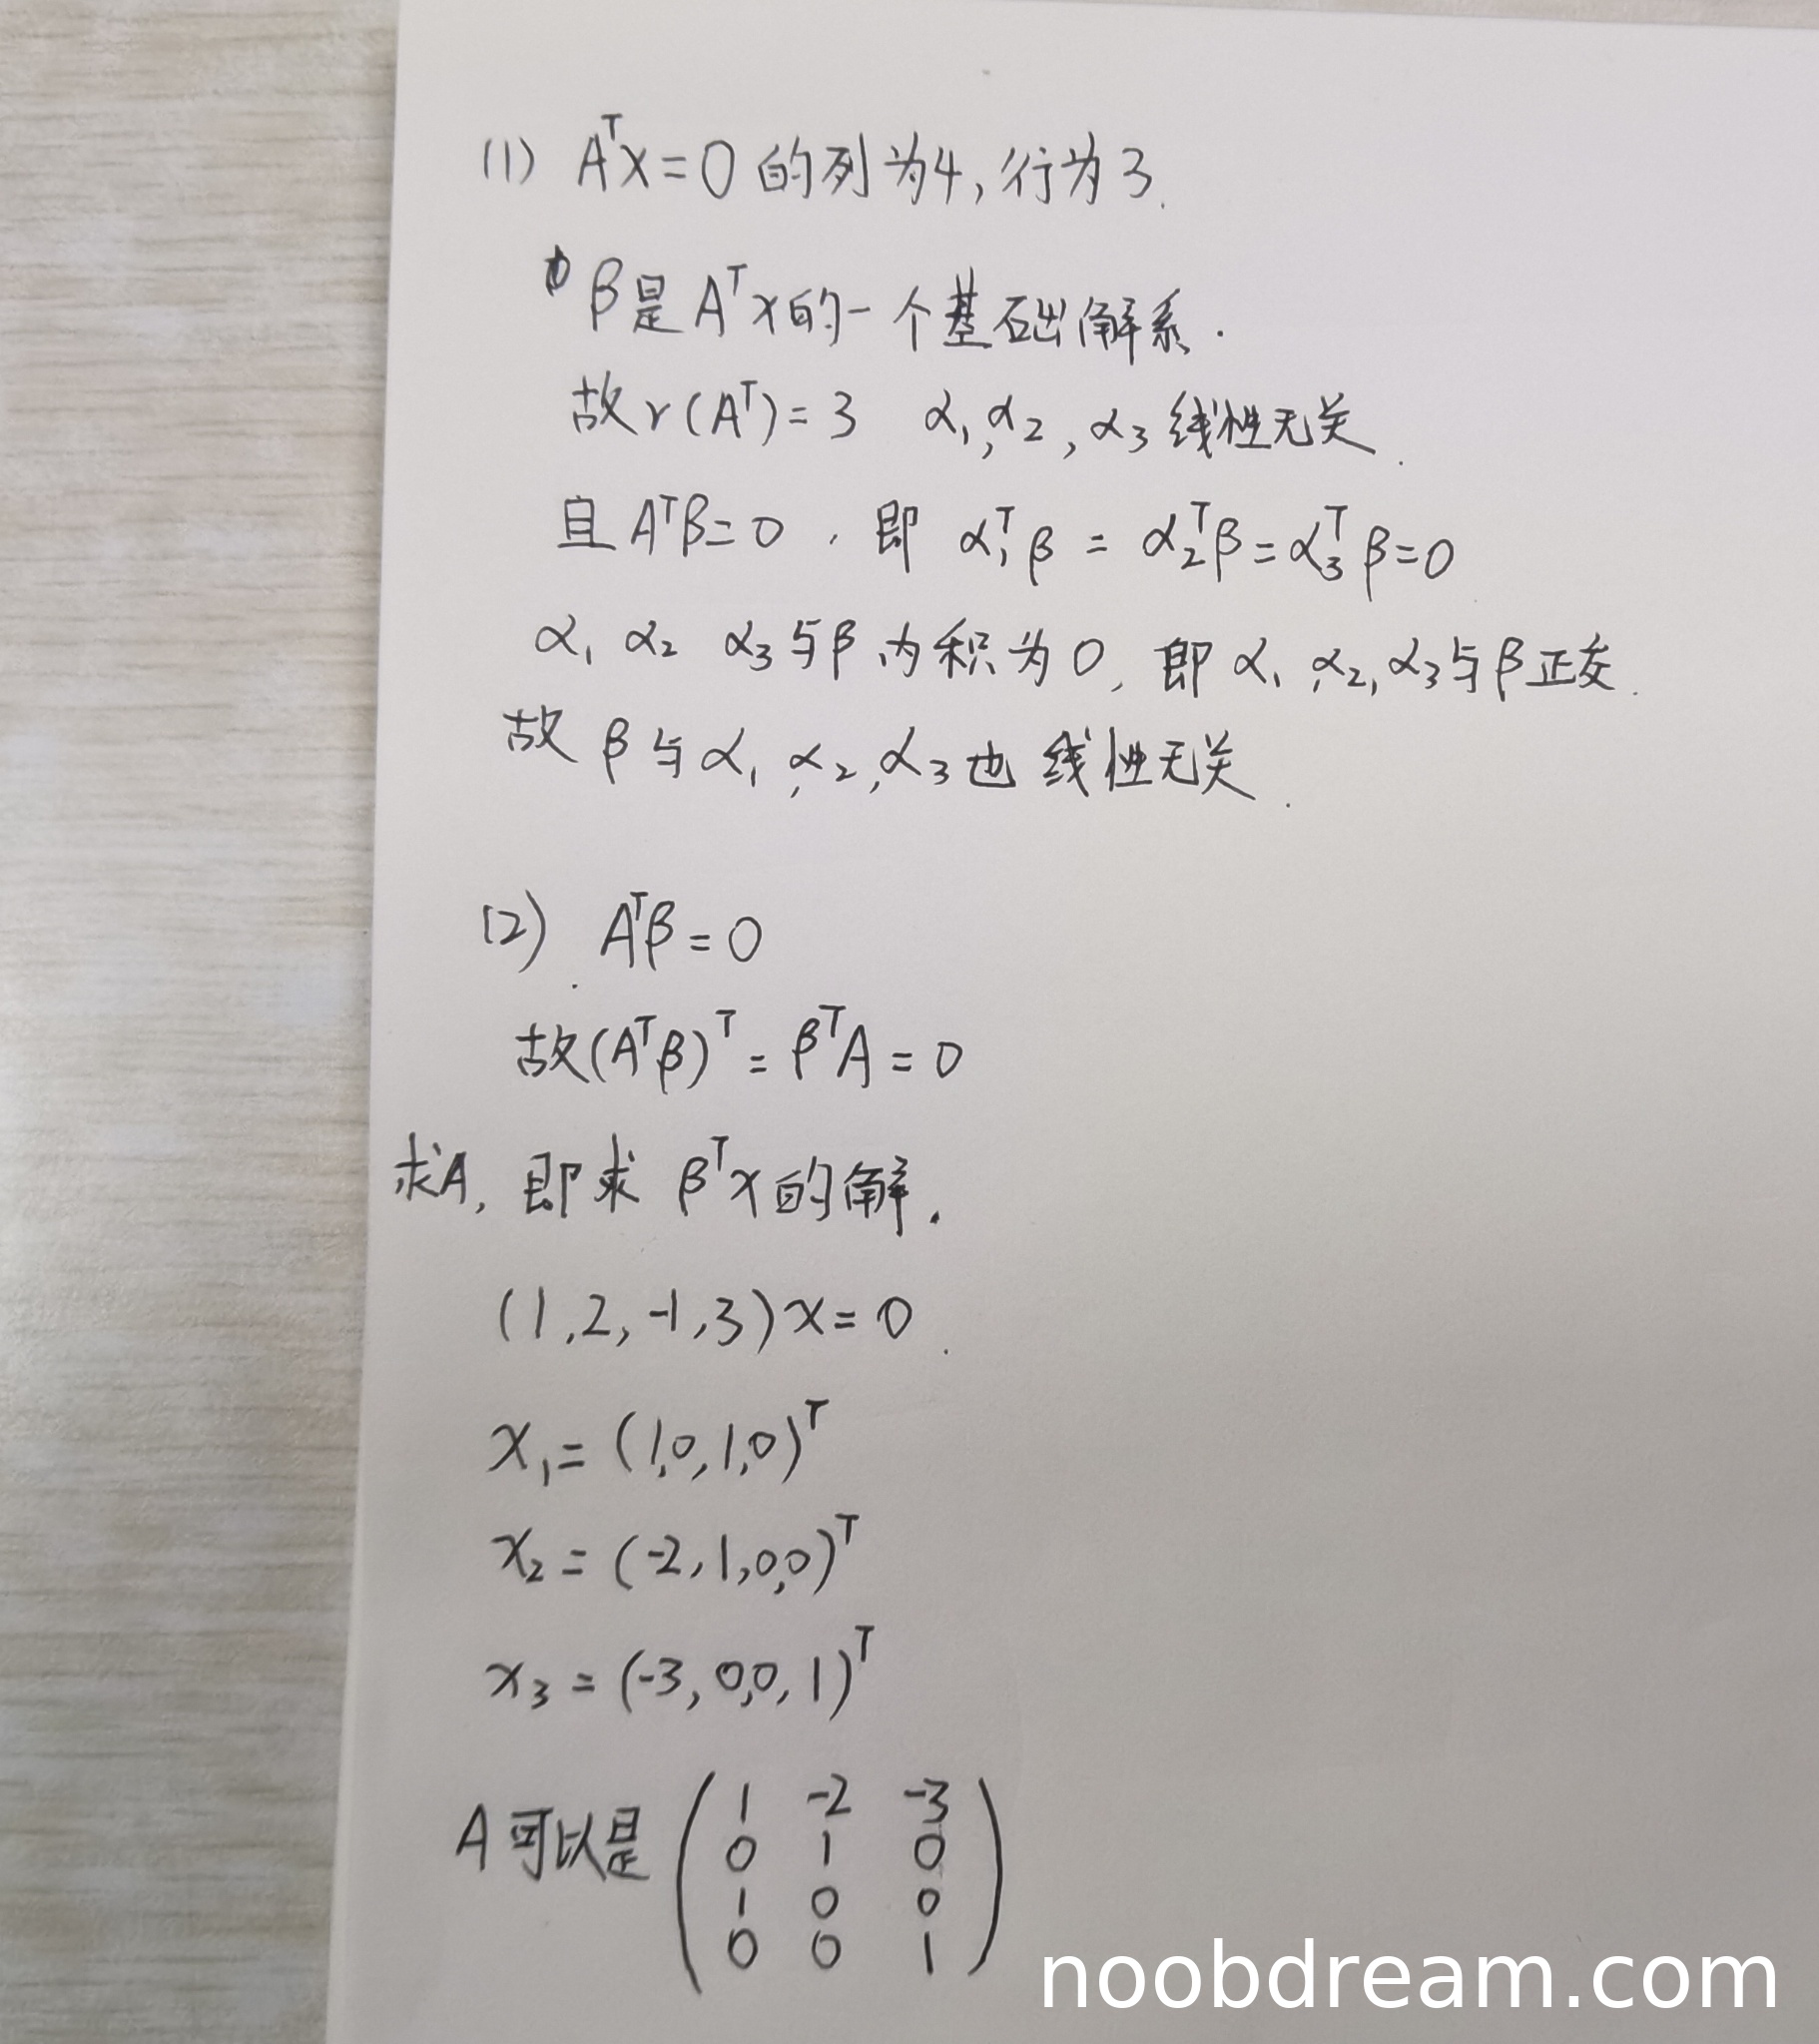 (1) Aᵀx=0的列为4,行为3.
β是Aᵀx的一个基础解系.
故r(Aᵀ)=3 α₁,α₂,α₃线性无关.
且Aᵀβ=0,即 α₁ᵀβ=α₂ᵀβ=α₃ᵀβ=0
α₁ α₂ α₃与β内积为0,即α₁,α₂,α₃与β正交.
故β与α₁,α₂,α₃也线性无关.
(2) Aᵀβ=0
故(Aᵀβ)ᵀ=βᵀA=0
求A,即求βᵀx的解.
(1,2,-1,3)x=0.
x₁=(1,0,1,0)ᵀ
x₂=(-2,1,0,0)ᵀ
x₃=(-3,0,0,1)ᵀ
A可以是
1 -2 -3
0 1 0
1 0 0
0 0 1
noobdream.com